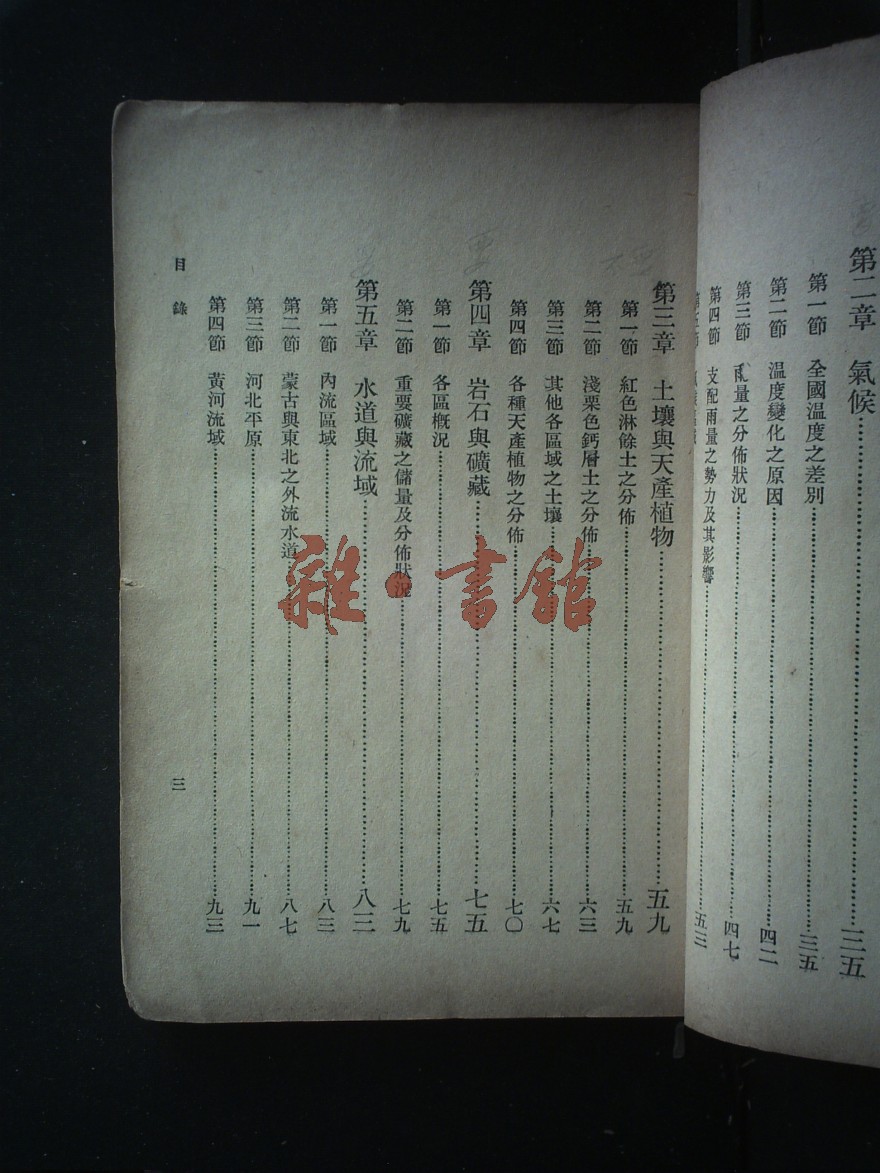 第二章 氣候……三五
第一節 全國温度之差別……三五
第二節 温度變化之原因……四二
第三節 雨量之分佈狀况……四七
第四節 支配雨量之勢力及其影響……五三
第三章 土壤與天產植物……五九
第一節 紅色淋餘土之分佈……五九
第二節 淺栗色鈣層土之分佈……六三
第三節 其他各區域之土壤……六七
第四節 各種天產植物之分佈……七〇
第四章 岩石與礦藏……七五
第一節 各區概况……七五
第二節 重要礦藏之儲量及分佈狀况……七九
第五章 水道與流域……八三
第一節 內流區域……八三
第二節 蒙古與東北之外流水道……八七
第三節 河北平原……九一
第四節 黃河流域……九三
目錄 三
雜·書館